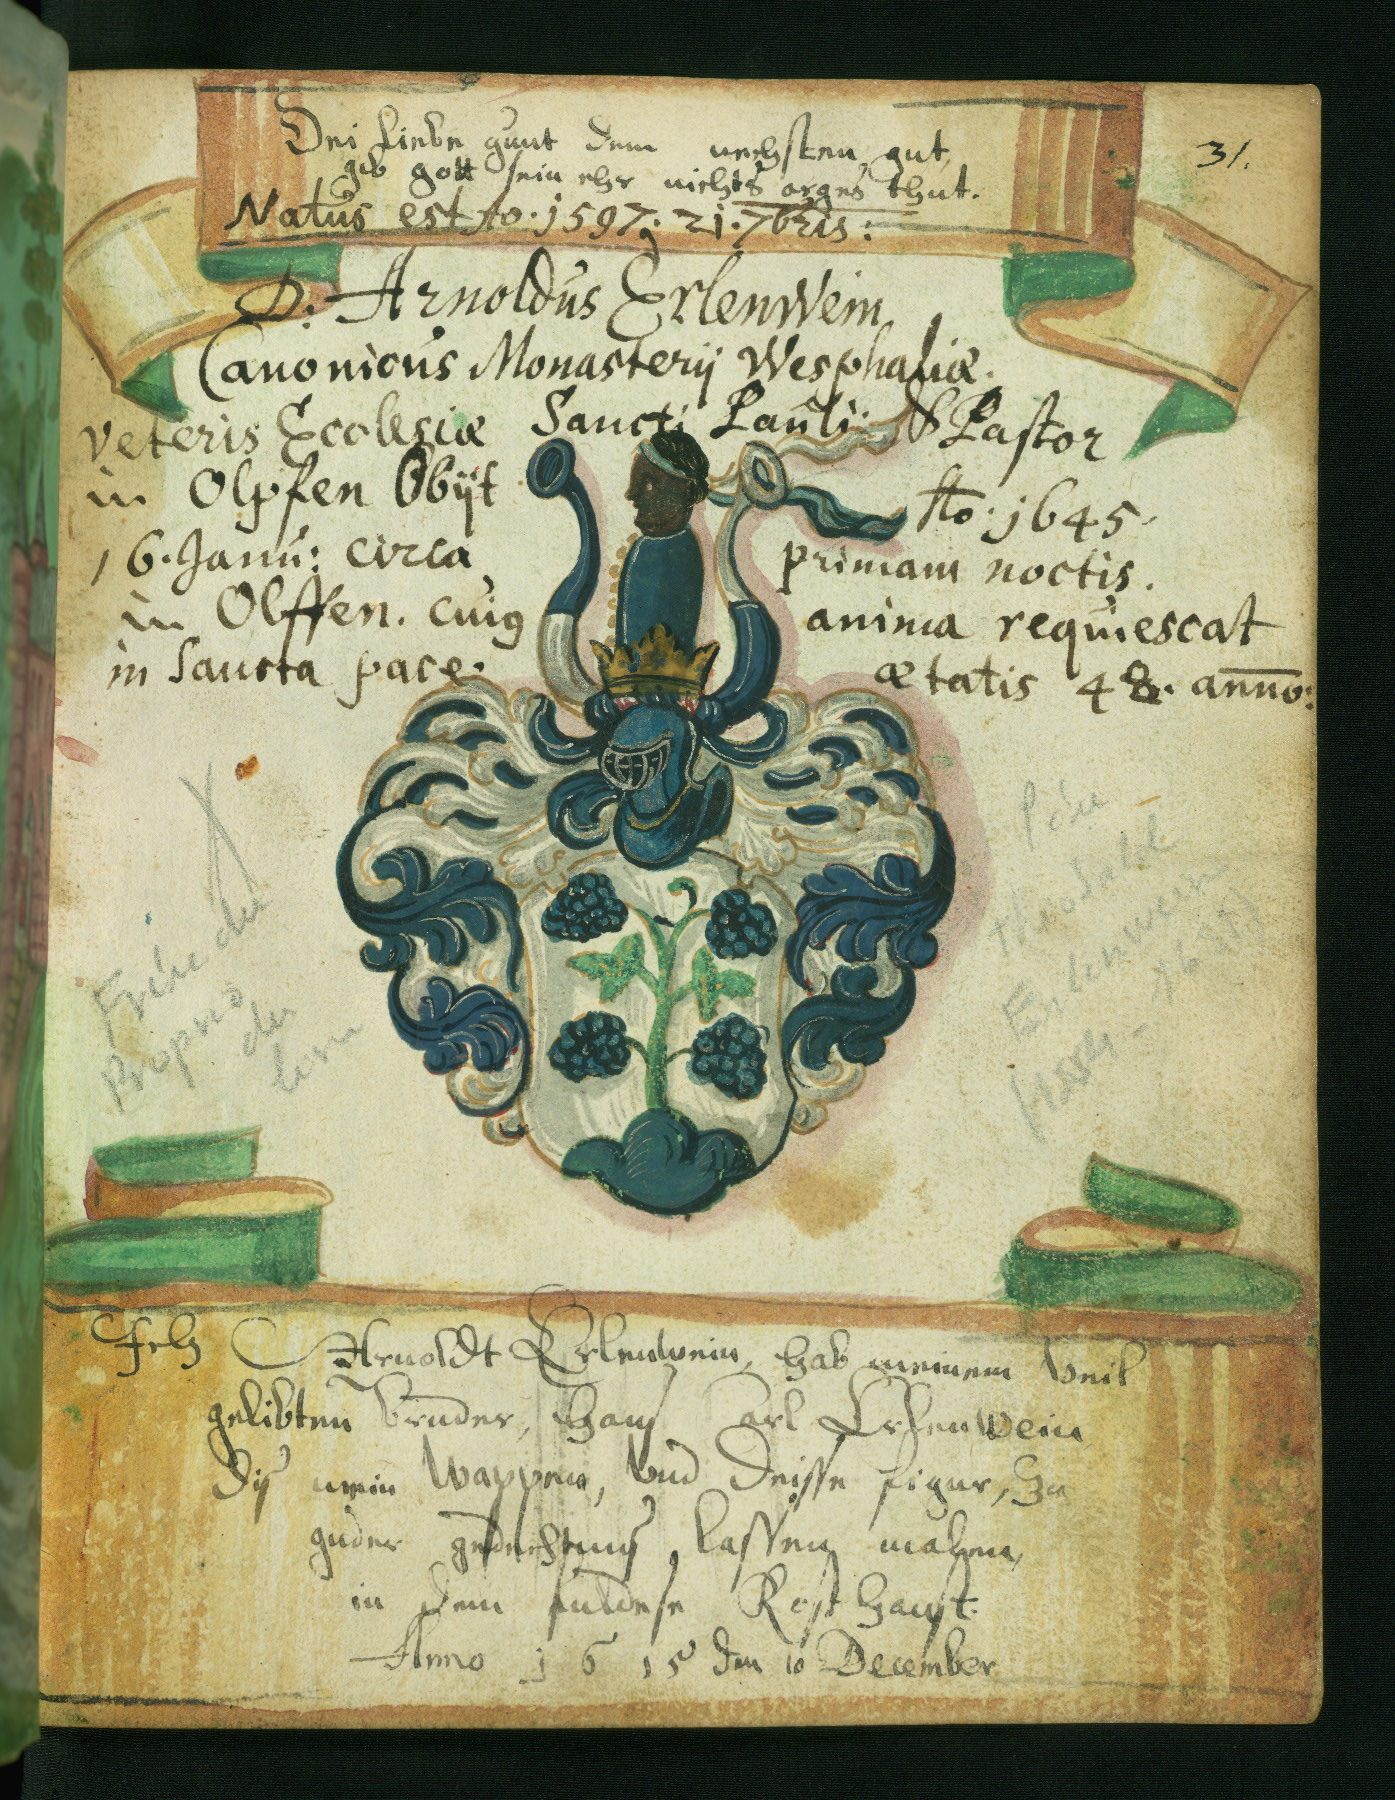 31.
Dei liebe gunt dem nechsten gut,
gib gott sein ehr nichts arges thut.
Natus est Ao. 1597. 21. 7bris:
D: Arnoldus Erlenwein
Canonicus Monasterij Wesphaliæ.
veteris Ecclesiæ Sancti Pauli & Pastor
in Olpfen Obijt Ao. 1645.
16. Janu: circa primam noctis.
in Olffen. cuiq anima requiescat
in Sancta pace. ætatis 48. anno:
Ich Arnoldt Erlenwein, hab meinem veil
gelibten bruder, Hans Carl Erlenwein
dis mein Wappen, vnd deisse figur, zu
guder gedechtnus, lassen mahen,
in dem Rost Haust.
Anno 1615 den 10 December